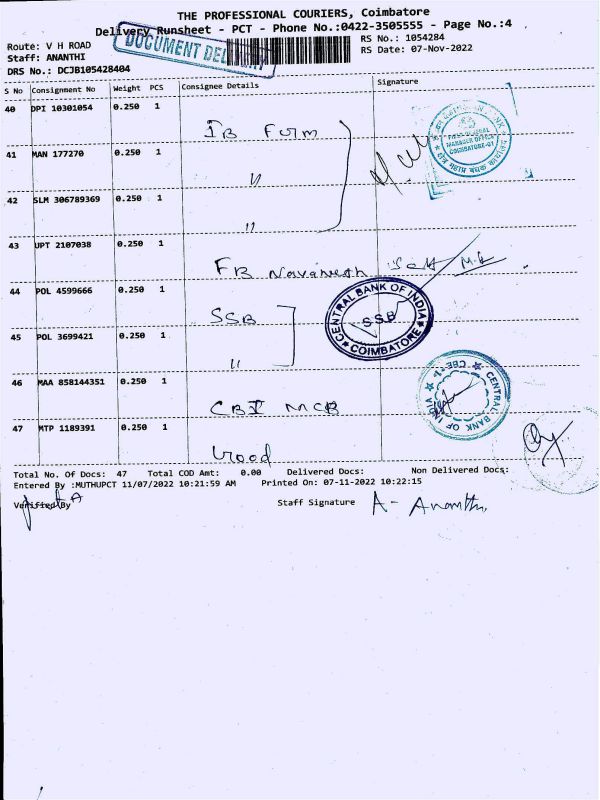 THE PROFESSIONAL COURIERS, Coimbatore
Delivery Runsheet - PCT - Phone No.:0422-3505555 - Page No.:4
DOCUMENT DEL
Route: V H ROAD
RS No.: 1054284
Staff: ANANTHI
RS Date: 07-Nov-2022
DRS No.: DCJB105428404
S No Consignment No Weight PCS Consignee Details Signature
40 DPI 10301054 0.250 1
IB Firm
41 MAN 177270 0.250 1
"
42 SLM 306789369 0.250 1
"
43 UPT 2107038 0.250 1
FB
44 POL 4599666 0.250 1
SSB
CENTRAL BANK OF INDIA
SSB
COIMBATORE
45 POL 3699421 0.250 1
"
46 MAA 858144351 0.250 1
CBI MCB
CENTRAL BANK OF INDIA
47 MTP 1189391 0.250 1
Total No. Of Docs: 47 Total COD Amt: 0.00 Delivered Docs: Non Delivered Docs:
Entered By :MUTHUPCT 11/07/2022 10:21:59 AM Printed On: 07-11-2022 10:22:15
Verified By Staff Signature A- Ananthi